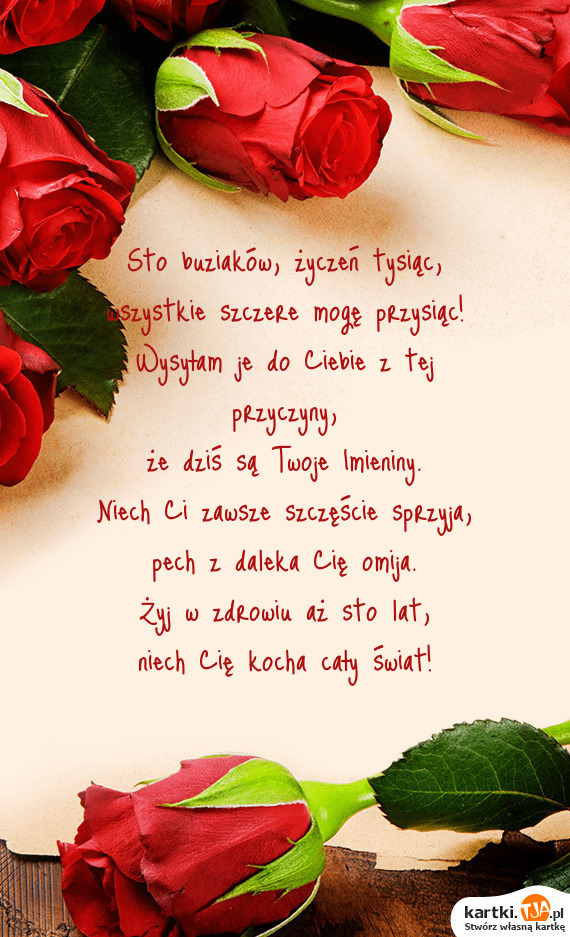 Sto buziaków, życzeń tysiąc,
wszystkie szczere mogę przysiąc!
Wysyłam je do Ciebie z tej
przyczyny,
że dziś są Twoje Imieniny.
Niech Ci zawsze szczęście sprzyja,
pech z daleka Cię omija.
Żyj w zdrowiu aż sto lat,
niech Cię kocha cały świat!
kartki.TJA.pl
Stwórz własną kartkę